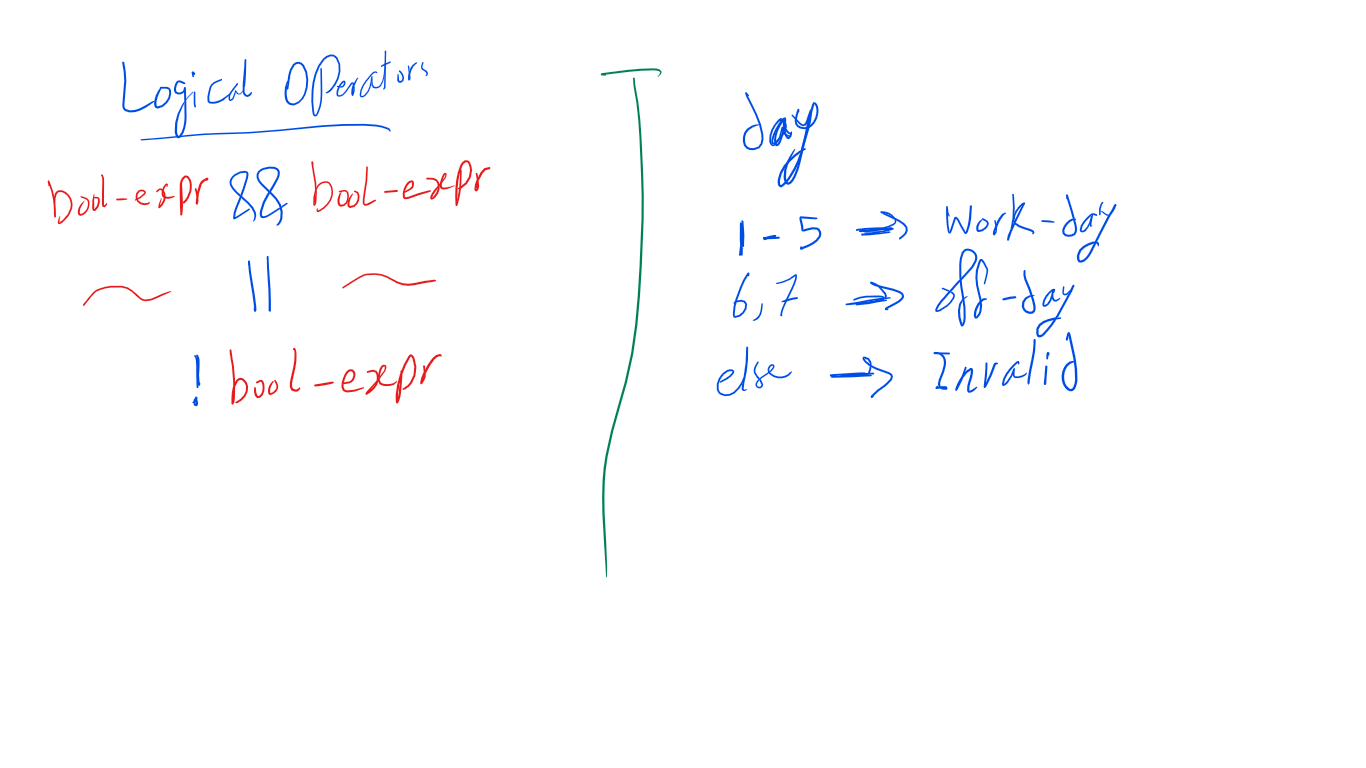 Logical Operators
bool-expr && bool-expr
||
! bool-expr
day
1 - 5 => Work-day
6,7 => off-day
else -> Invalid